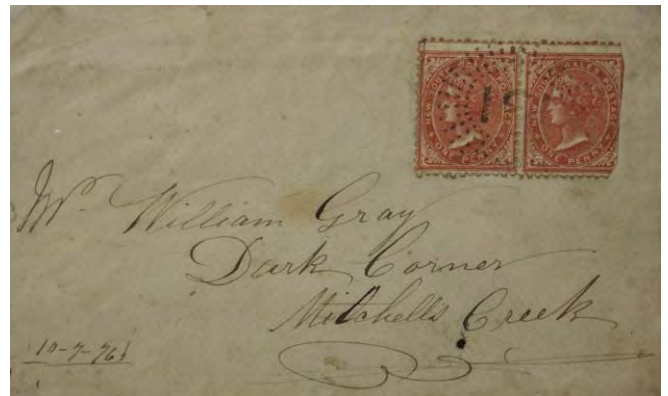 NEW SOUTH WALES POSTAGE
ONE PENNY
NEW SOUTH WALES POSTAGE
ONE PENNY
Mr. William Gray
Dark Corner
Mitchells Creek
10-7-76